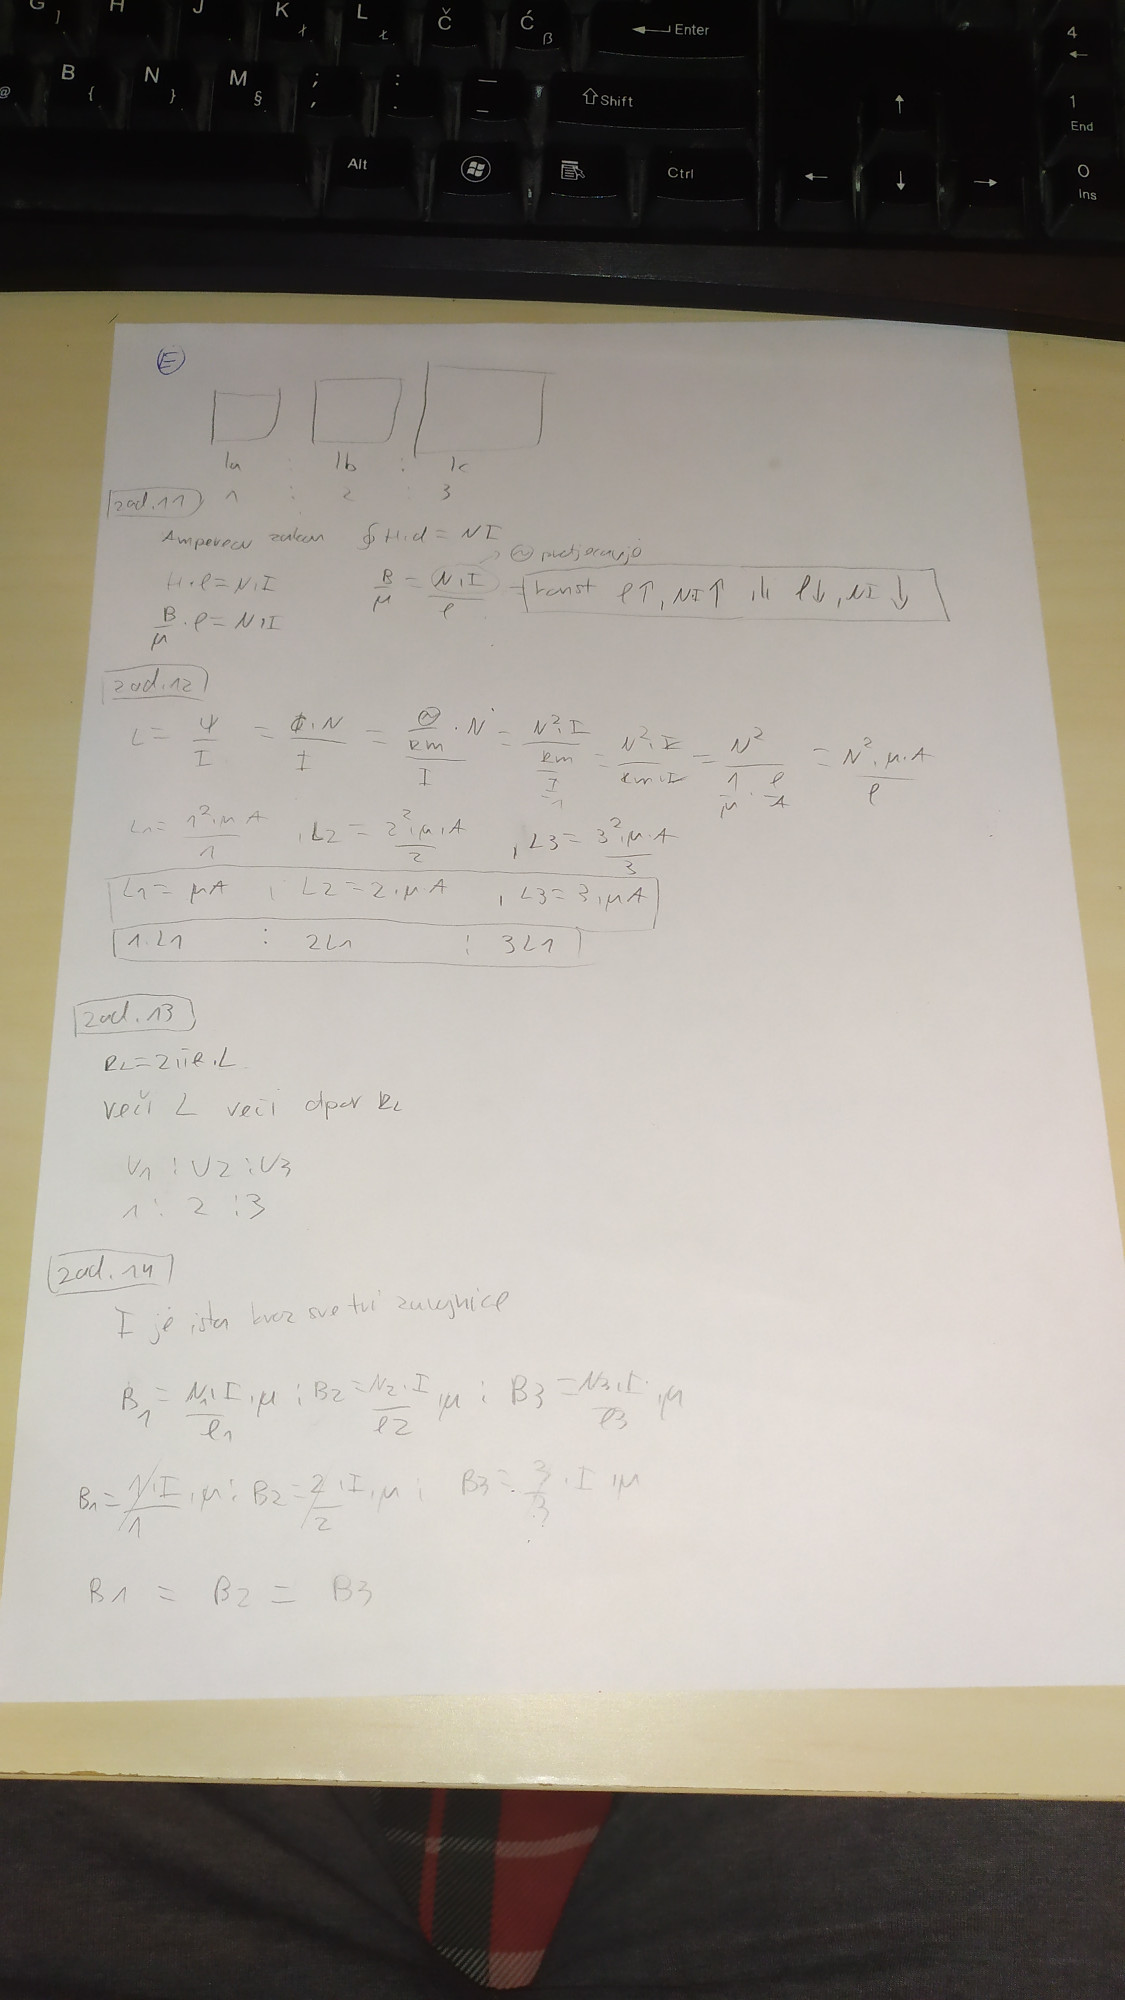 G ] H J K ł L Ł Č Ć ß Enter 4 ←
@ B { N } M § ; , : . — _ Shift ↑ 1 End
Alt Ctrl ← ↓ → 0 Ins
E
la : lb : lc
zad.11 1 : 2 : 3
Amperov zakon ∮H.d = NI
H.l=N.I B/μ = N.I/l konst l↑, NI↑ ili l↓, NI↓
B/μ . l = N.I
zad.12
L = Ψ/I = Φ.N/I = (Θ/Rm . N)/I = (N².I/Rm)/I = N².I/Rm.I = N²/(1/μ . l/A) = N².μ.A/l
L1 = 1².μA/1 , L2 = 2².μ.A/2 , L3 = 3².μ.A/3
L1 = μA , L2=2.μA , L3=3.μA
1.L1 : 2L1 : 3L1
zad.13
veći L veći otpor RL
U1 : U2 : U3
1 : 2 : 3
zad.14
I je ista kroz sve tri zavojnice
B1 = N1.I/l1 .μ ; B2 = N2.I/l2 .μ ; B3 = N3.I/l3 .μ
B1 = 1.I/1 .μ ; B2 = 2/2 .I.μ ; B3 = 3/3 . I .μ
B1 = B2 = B3